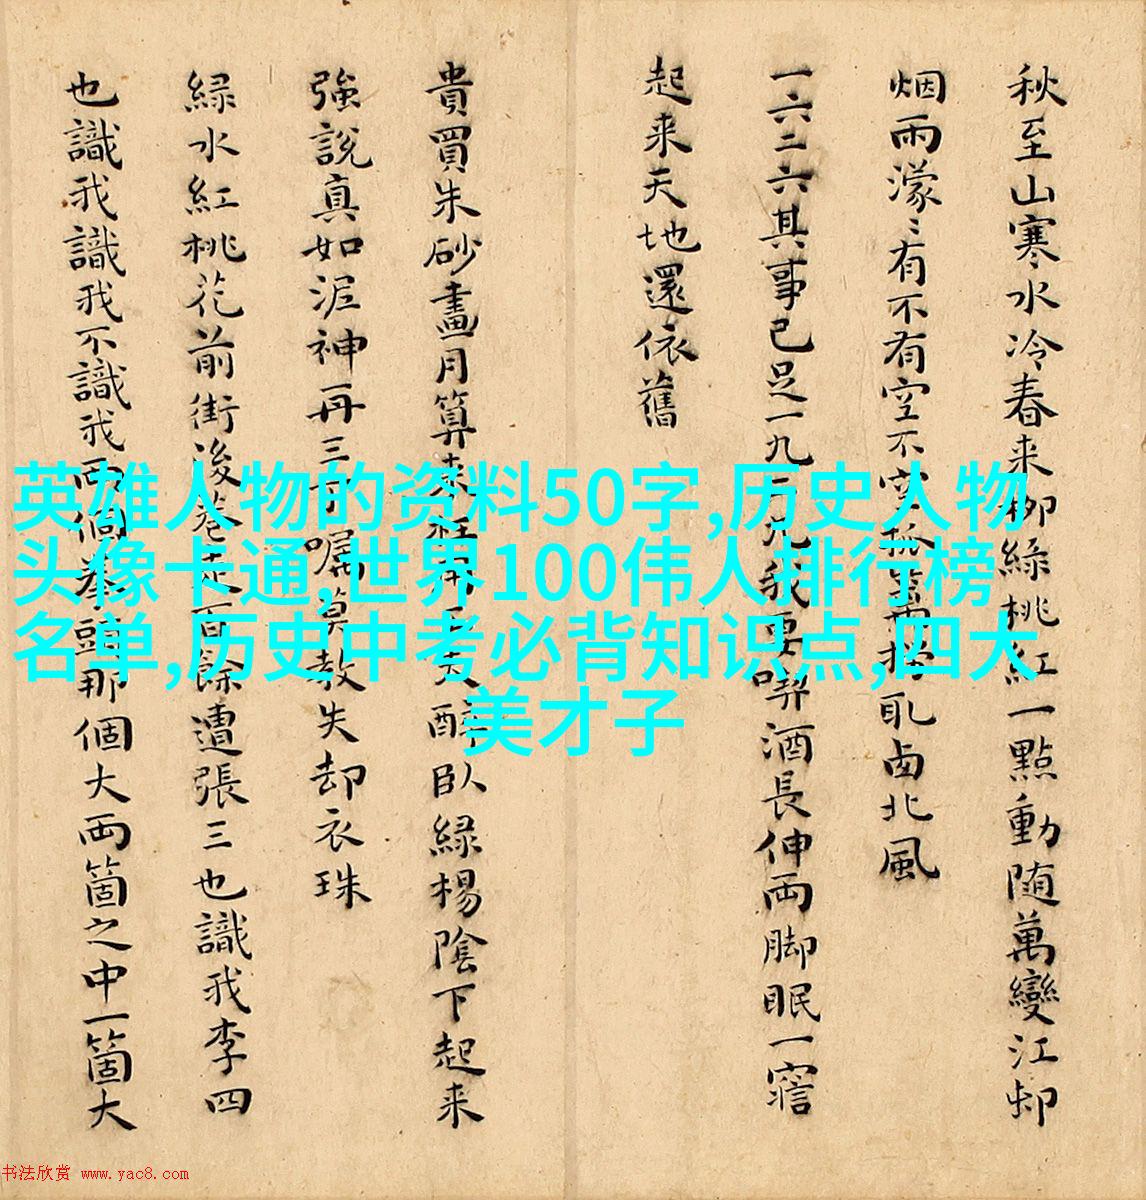 秋至山寒水冷春来柳綠桃紅一點動随萬變江邨
烟雨濛〻有不有空不空孤籊而撈臥卤北風
一六二六其事已足一九二九我要喫酒長伸两脚眠一寤
起来天地還依舊
貴買朱砂畫月算来枉用工夫醉臥綠楊陰下起来
強說真如泥神再三叮嘱莫教失却衣珠
緑水紅桃花前街後巷走百餘遭張三也識我李四
也識我識我不識我两個拳頭那個大两箇之中一箇大
英雄人物的资料50字,历史人物
头像卡通,世界100伟人排行榜
名单,历史中考必背知识点,四大
美才子
书法欣赏 www.yac8.com